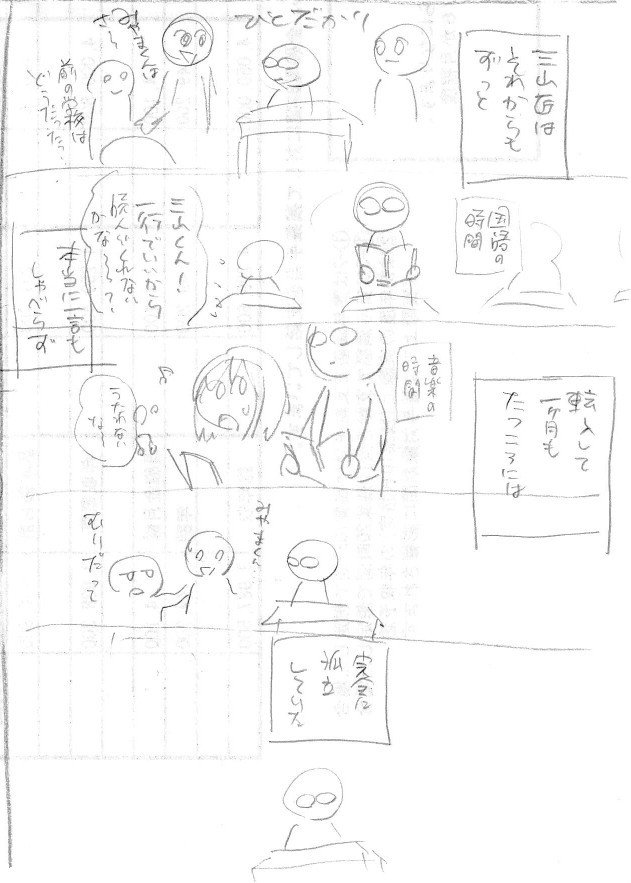 三山君は
それからも
ずっと
ひとだかり
みやまくんは
さー
前の学校は
どこだったっ…
国語の
時間
三山くん!
一行でいいから
読んでくれない
かなぁって、
本当に一言も
しゃべらず
音楽の
時間
うたわない
なー
転入して
一ヶ月も
たつころには
みやまくん…
むりだって
完全に
孤立
していた